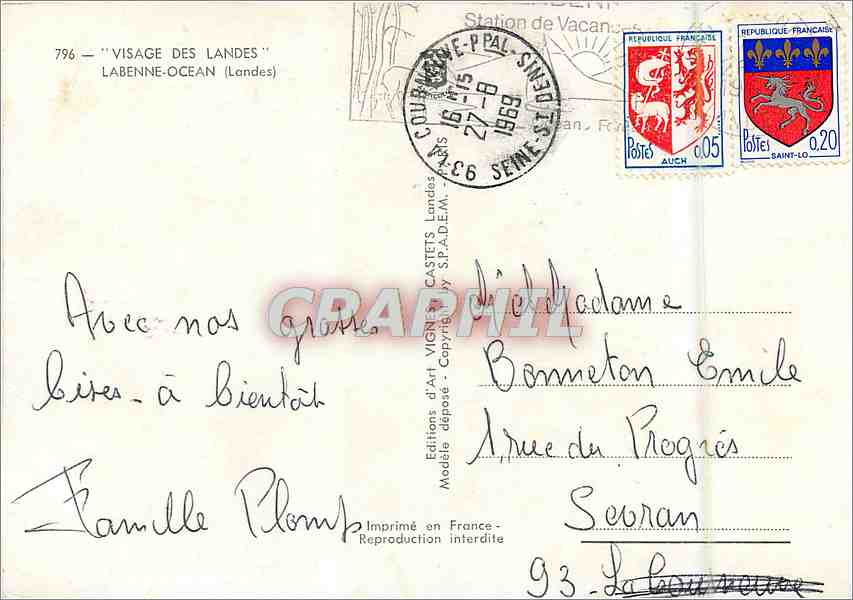 796 — "VISAGE DES LANDES"
LABENNE-OCEAN (Landes)
Station de Vacances
LA COURNEUVE-PPAL-
93 SEINE-ST DENIS
16H15
27-8
1969
REPUBLIQUE FRANÇAISE
POSTES 0,05
AUCH
REPUBLIQUE FRANÇAISE
POSTES 0,20
SAINT-LO
Editions d'Art VIGNES CASTETS Landes
Modèle déposé - Copyright by S.P.A.D.E.M. - Paris
CPAPHIL
Avec nos grosses
bises - à bientôt
Famille Plomp
Imprimé en France -
Reproduction interdite
M et Madame
Bonneton Emile
1, rue du Progrès
Sevran
93 - La Courneuve